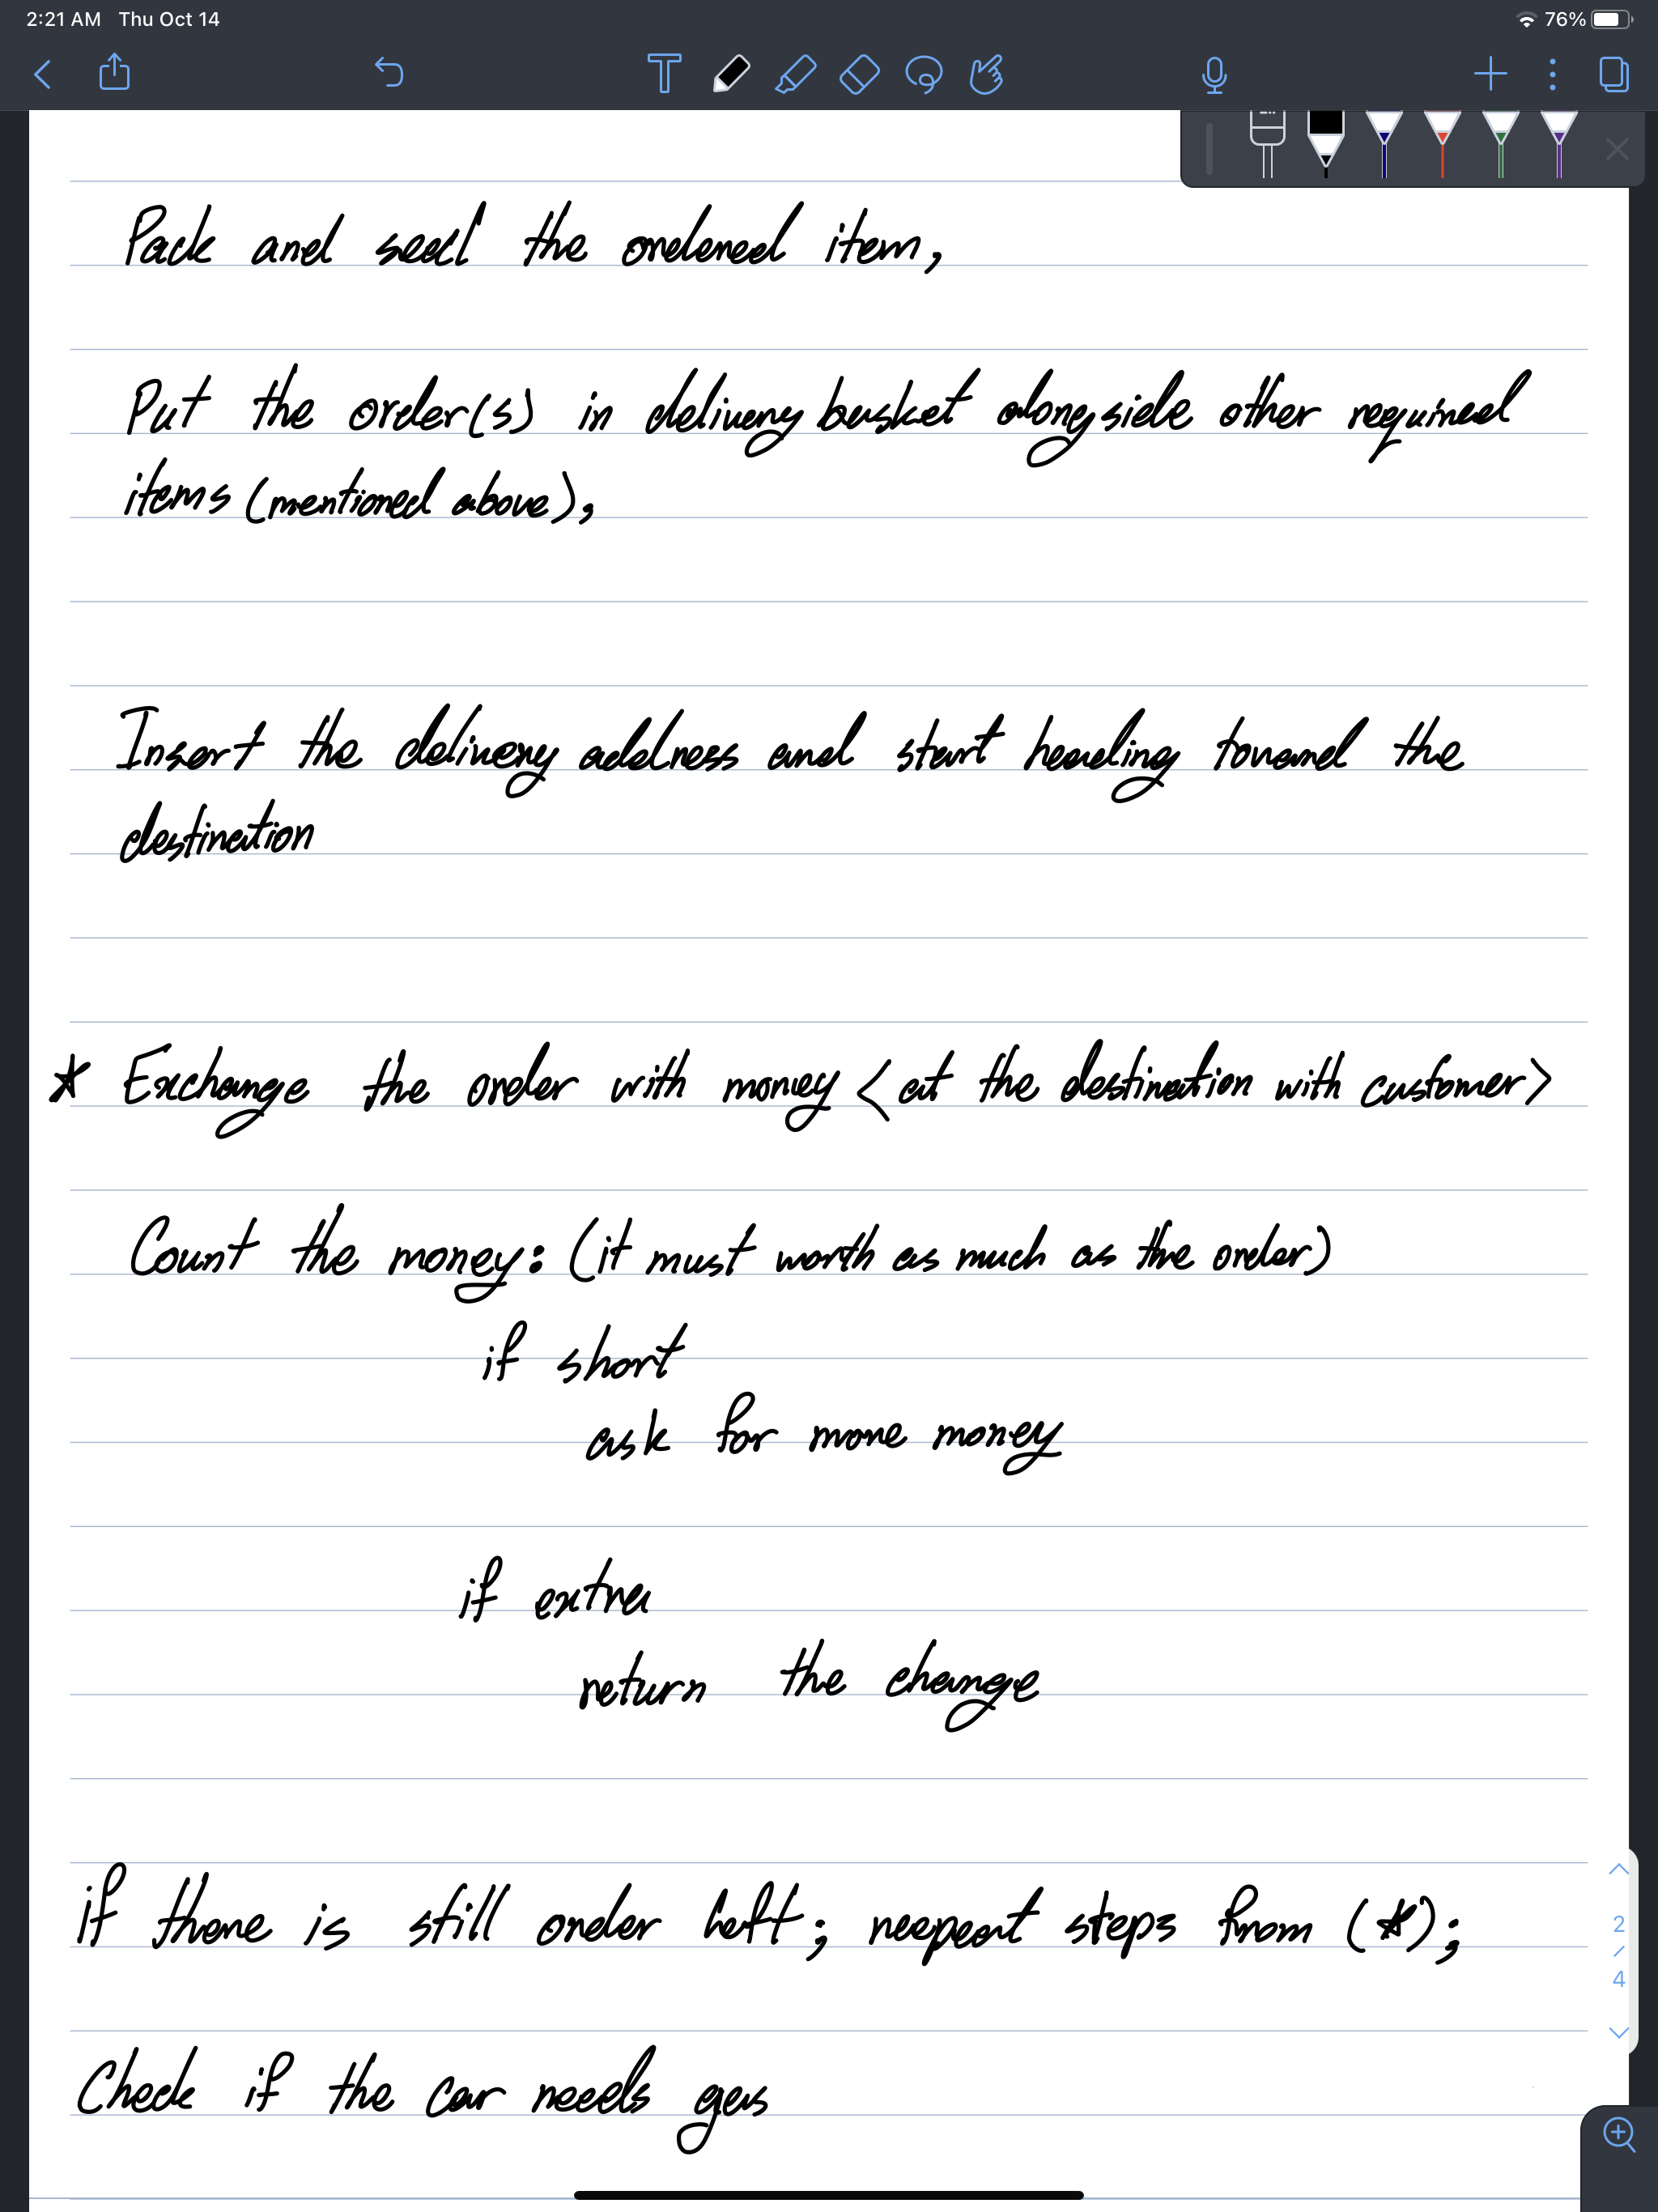 2:21 AM Thu Oct 14
76%
Pack and seal the ordered item,
Put the order(s) in delivery basket alongside other required
items (mentioned above),
Insert the delivery address and start heading toward the
destination
* Exchange the order with money < at the destination with customer>
Count the money: (it must worth as much as the order)
if short
ask for more money
if extra
return the change
if there is still order left; reepeat steps from (*);
Check if the car needs gas
2
/
4